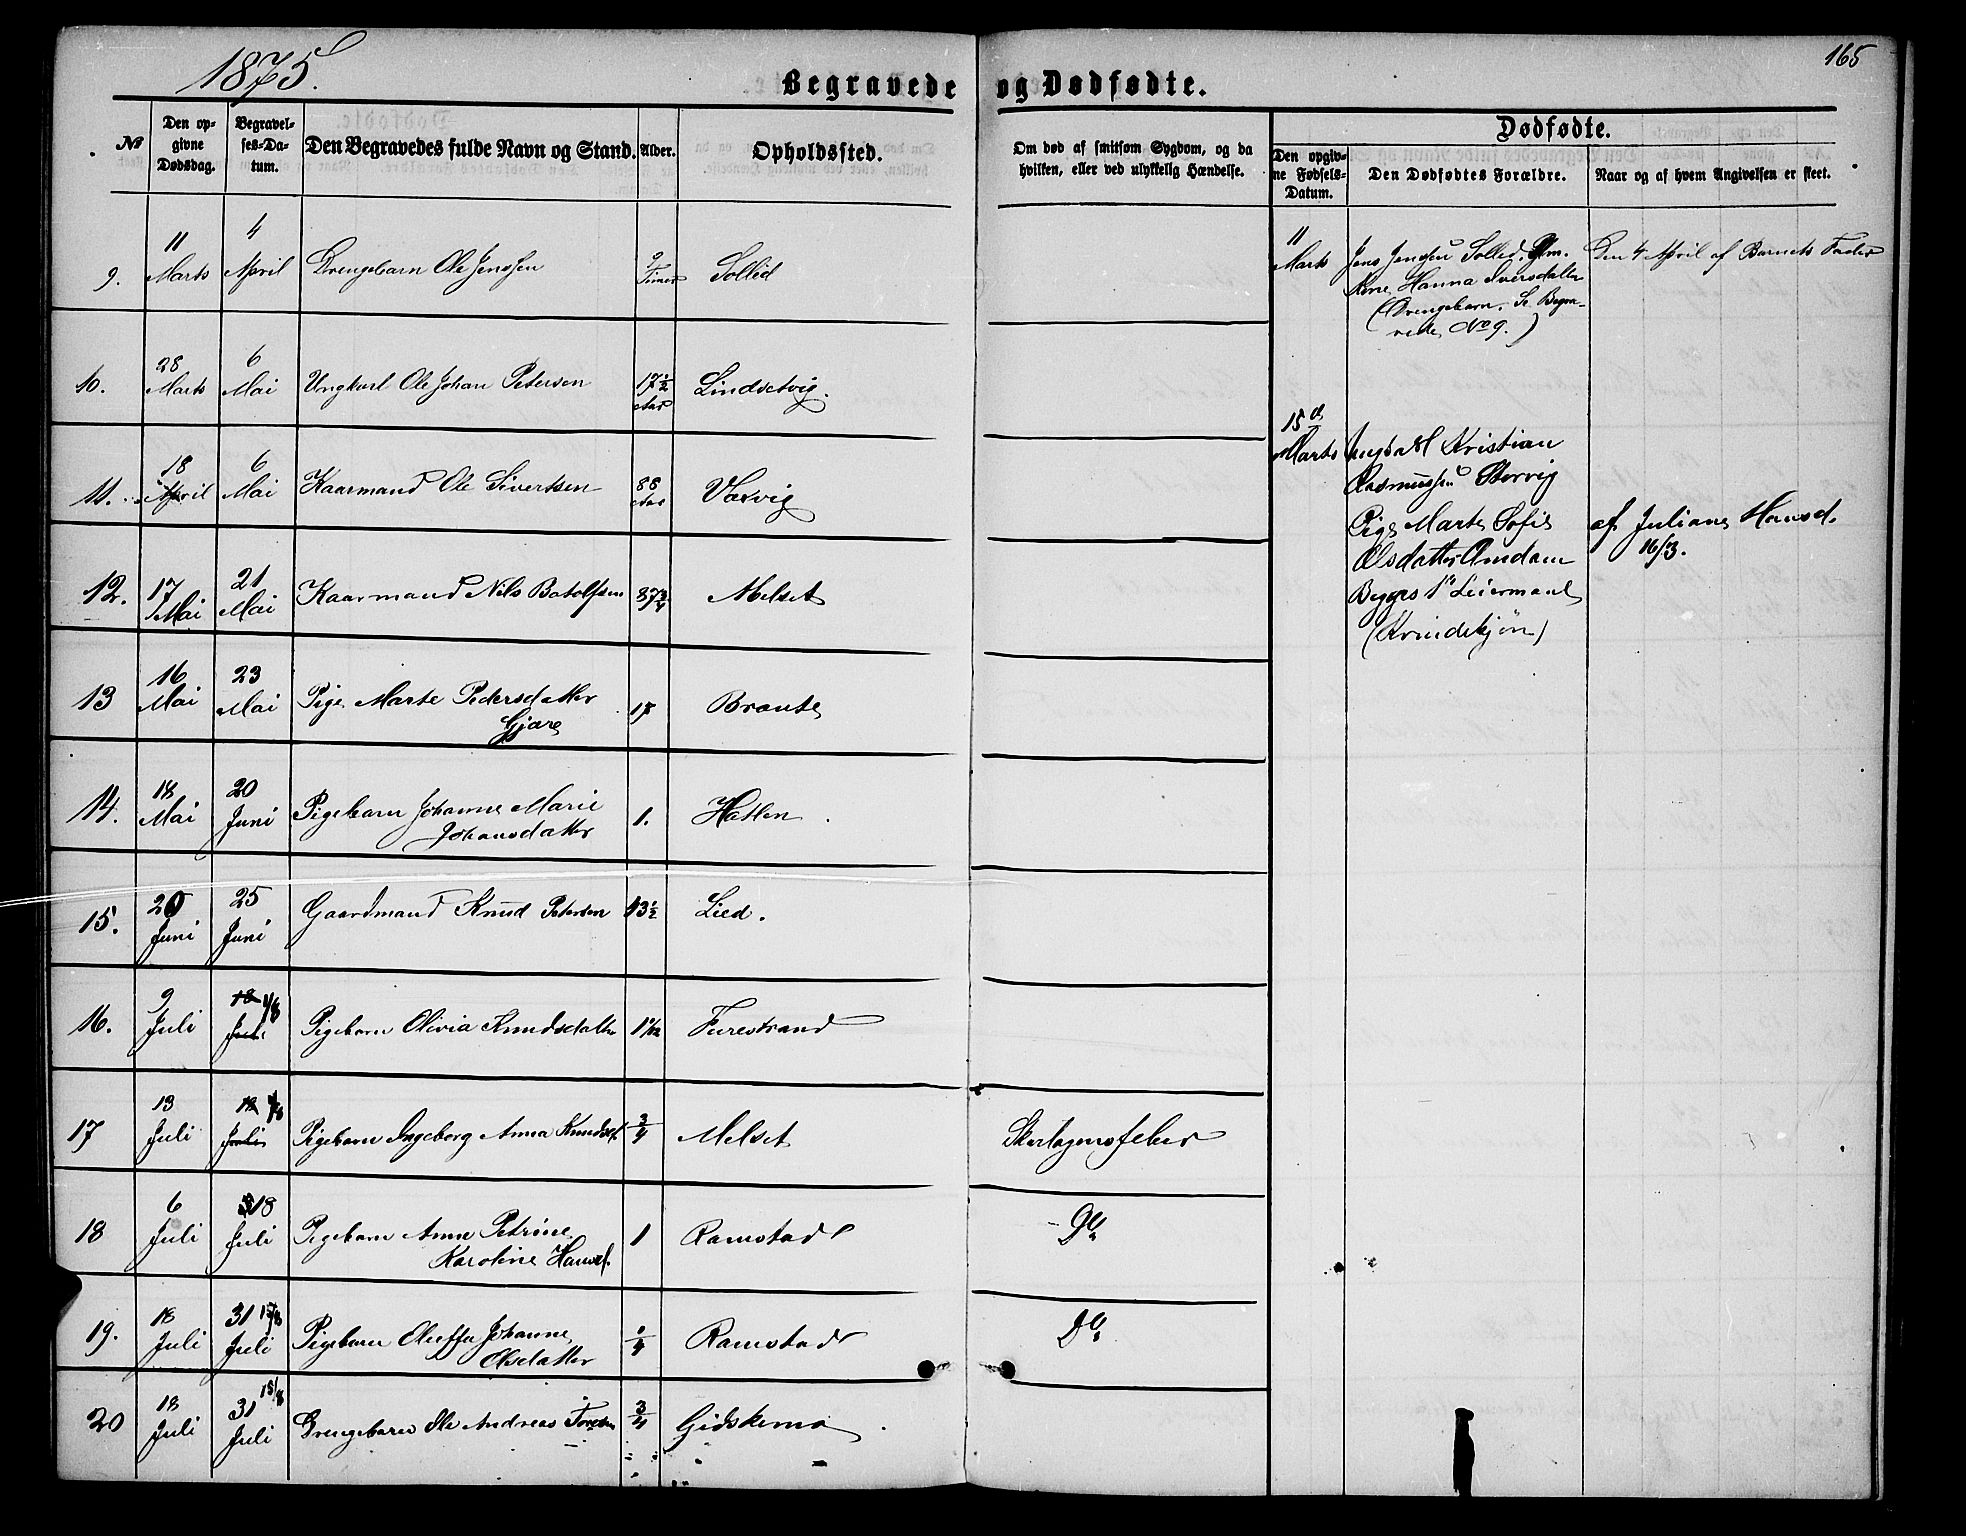 1875.
165
Begravede og Dødfødte.
No
Den opgivne Dødsdag.
Begravelses-Datum.
Den Begravedes fulde Navn og Stand.
Alder.
Opholdssted.
Om død af smitsom Sygdom, og da hvilken, eller ved ulykkelig Hændelse.
Dødfødte.
Den opgivne Fødsels-Datum.
Den Dødfødtes Forældre.
Naar og af hvem Angivelsen er skeet.
9. 11 Marts 4 April Drengebarn Ole Jenssen 9 Timer Sollid
10. 28 Marts 6 Mai Ungkarl Ole Johan Petersen 17½ Aar Lindsetvig.
11. 18 April 6 Mai Kaarmand Ole Sivertsen 88 Aar Varvig
12. 17 Mai 21 Mai Kaarmand Nils Botolfsen 87¾ Melset
13 16 Mai 23 Mai Pige Marte Pedersdatter
Gjære 17 Braute
14. 18 Mai 20 Juni Pigebarn Johanne Marie
Johansdatter 1. Hatlen
15. 20 Juni 25 Juni Gaardmand Knud Petersen 43½ Lied.
16. 9 Juli 18 Juli 1/8 Pigebarn Olivia Knudsdatter 1 1/12 Furestrand
17 13 Juli 18 Juli 1/8 Pigebarn Ingeborg Anna Knudsd. ¾ Melset Skarlagensfeber
18 6 Juli 18 Juli Pigebarn Anne Petrine
Karoline Hansd. 1 Ramstad Do
19. 18 Juli 31 Juli 15/8 Pigebarn Oluffa Johanne
Olsdatter ¼ Ramstad Do
20 18 Juli 31 Juli 15/8 Drengebarn Ole Andreas ¾ Gidskemo
11 Marts Jens Jensen Sollid, Gm.
Kone Hanna Iversdatter
(Drengebarn. Se Begra-
vede No 9.)
Den 4 April af Barnets Fader
15de Marts Kristian
Rasmussen Storvig
Pige Marte Sofie
Olsdatter Amdam
Begges 1ste Leiermaal
(Kvindekjøn)
af Juliane Hansd.
16/3.